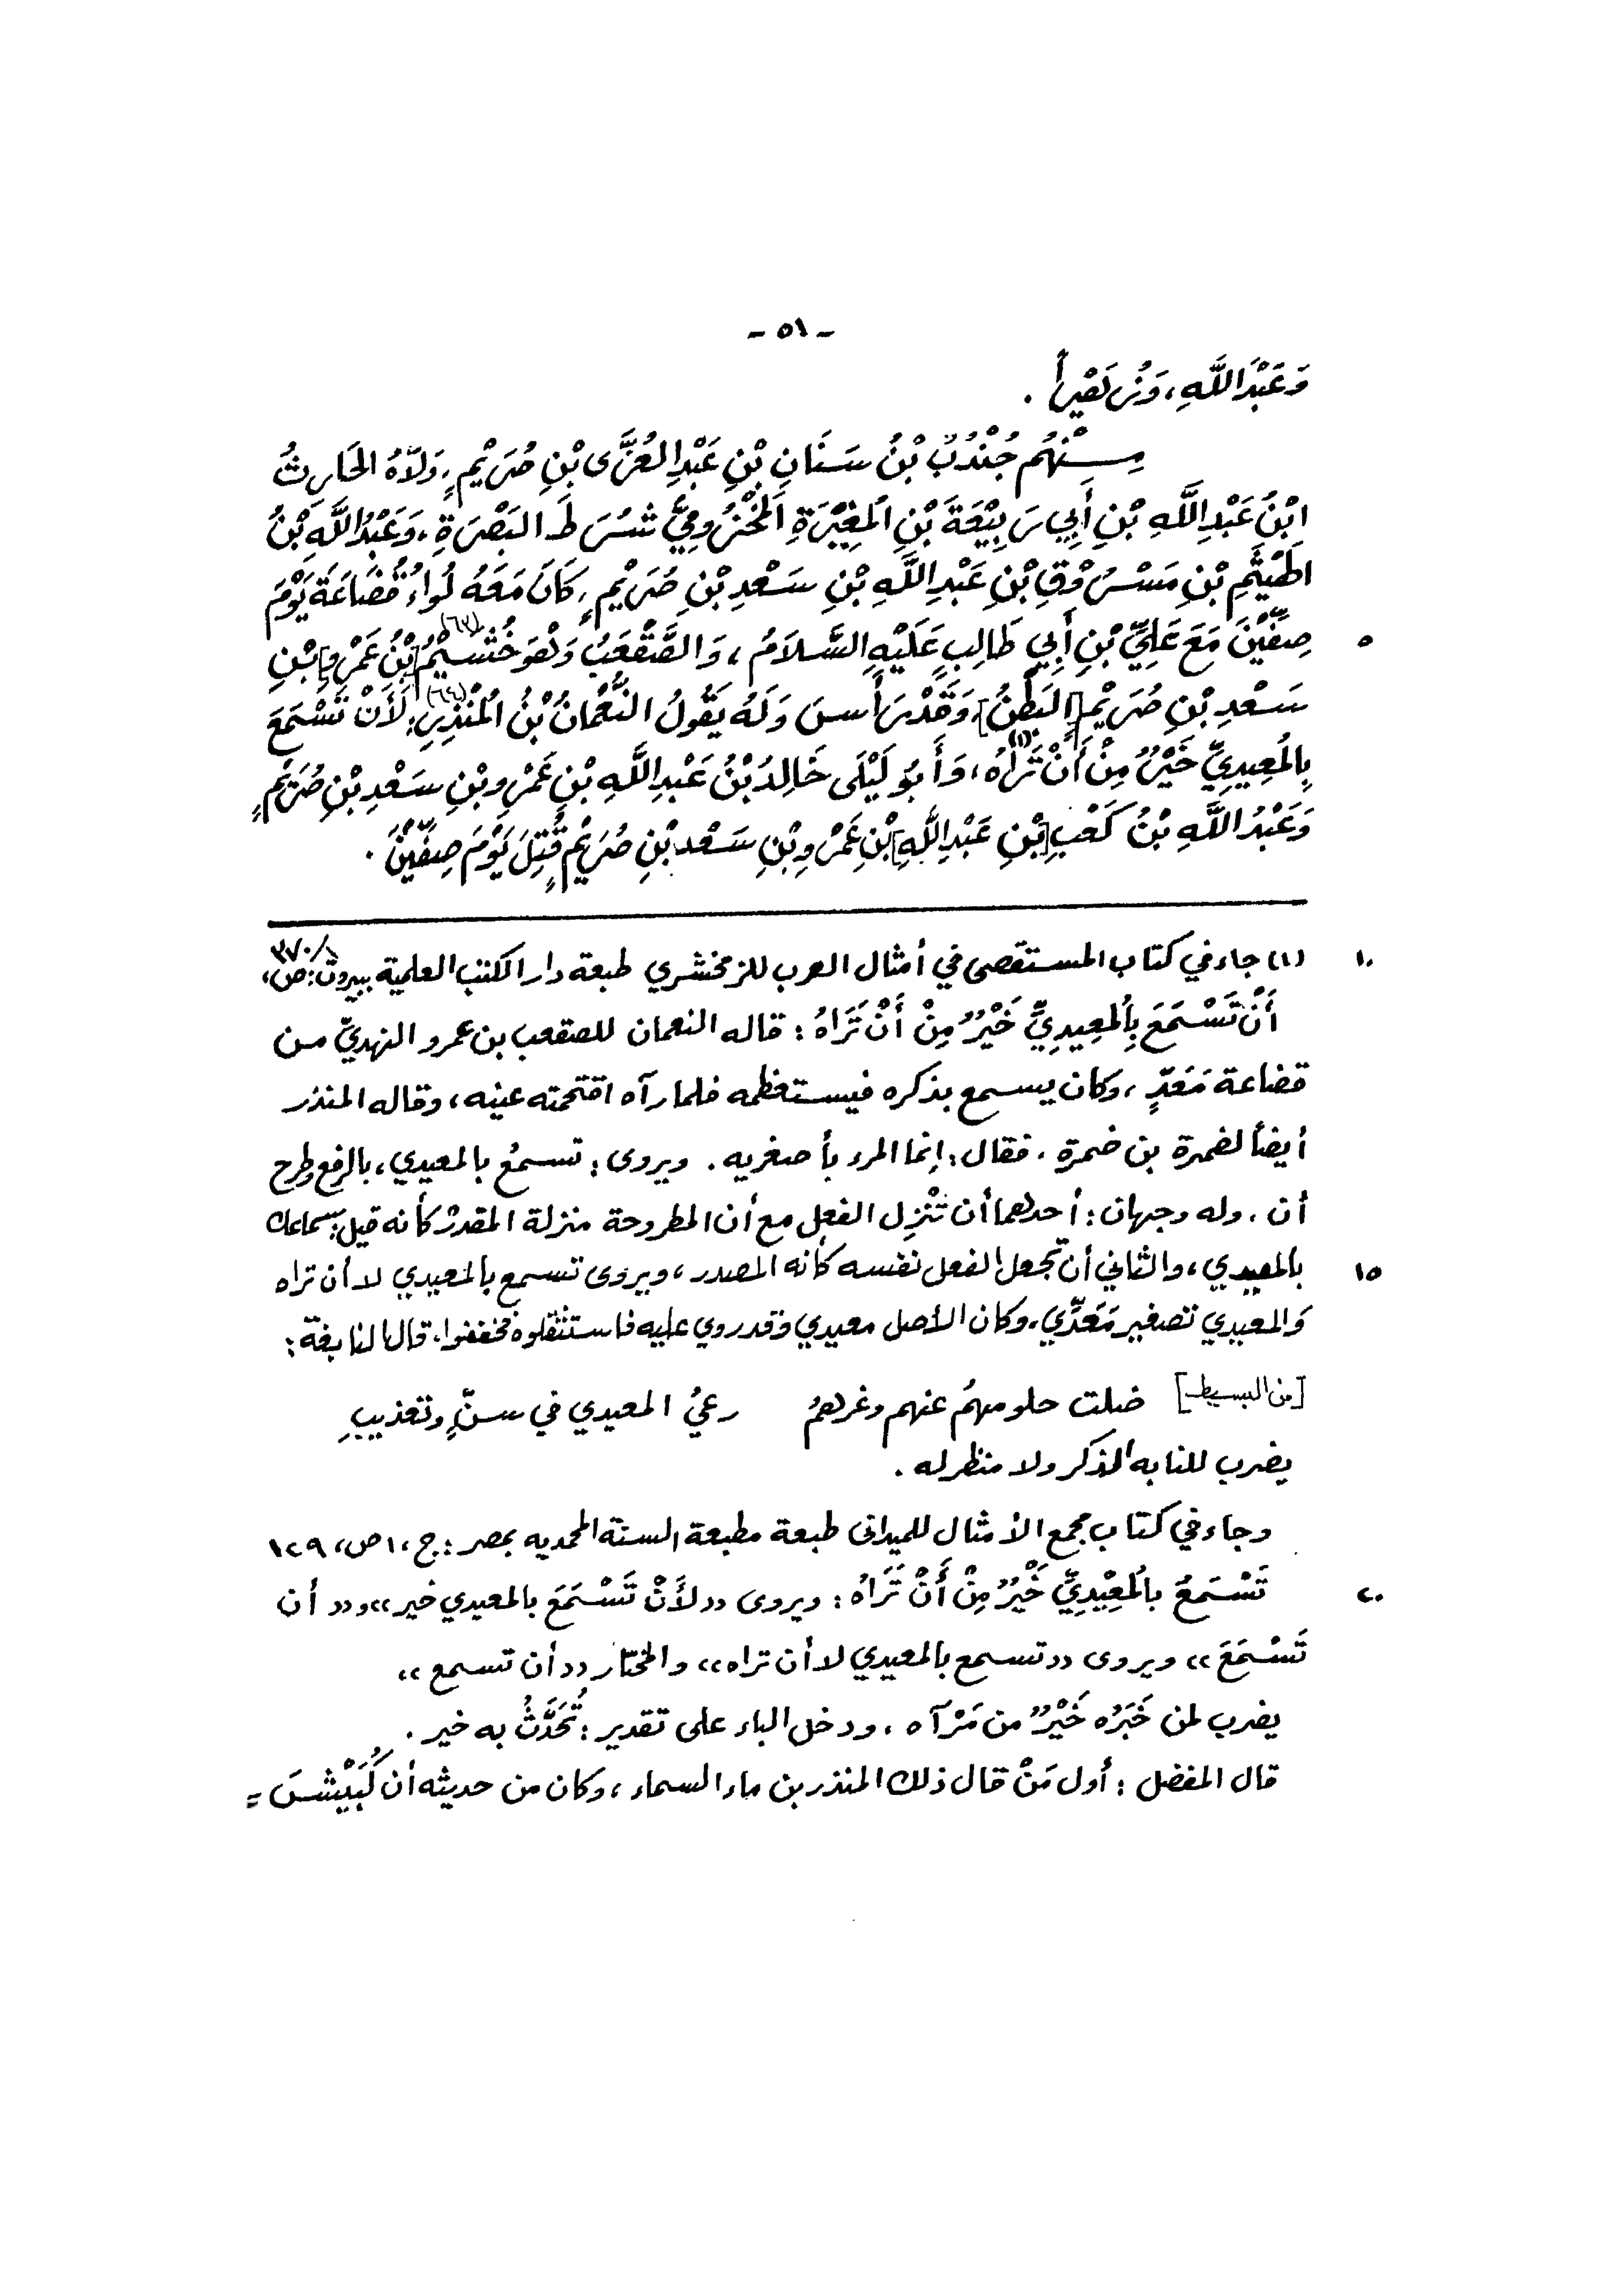 - ٥١ -
وَعَبْدَ اللَّهِ، وَنُصَيْراً .
مِنْهُم جُنْدُبُ بْنُ سَنَانِ بْنِ عَبْدِ العُزَّى بْنِ صُرَيْمٍ، وَلّاهُ الحَارِثُ
ابْنُ عَبْدِ اللَّهِ بْنِ أَبِي رَبِيْعَةَ بْنِ المُغِيْرَةِ المَخْزُومِيُّ شُرَطَ البَصْرَةِ، وَعَبْدُ اللَّهِ بْنُ
الهَيْثَمِ بْنِ مَسْرُوْقِ بْنِ عَبْدِ اللَّهِ بْنِ سَعْدِ بْنِ صُرَيْمٍ، كَانَ مَعَهُ لُوَاءُ قُضَاعَةَ يَوْمَ
٥ صِفِّيْنَ مَعَ عَلِيِّ بْنِ أَبِي طَالِبٍ عَلَيْهِ السَّلاَمُ، وَالصَّقْعَبُ وَهُوَ خُثَيْمُ (٦٣) بْنُ عَمْرِو بْنِ
سَعْدِ بْنِ صُرَيْمٍ [البَطْنُ]، وَقَدْ رَأَسَ وَلَهُ يَقُولُ النُّعْمَانُ بْنُ المُنْذِرِ (٦٤): لَأَنْ تَسْمَعَ
بِالمُعِيدِيِّ خَيْرٌ مِنْ أَنْ تَرَاهُ (١)، وَأَبُو لَيْلَى خَالِدُ بْنُ عَبْدِ اللَّهِ بْنِ عَمْرِو بْنِ سَعْدِ بْنِ صُرَيْمٍ
وَعَبْدُ اللَّهِ بْنُ كَعْبِ [بْنِ عَبْدِ اللَّهِ] بْنِ عَمْرِو بْنِ سَعْدِ بْنِ صُرَيْمٍ قُتِلَ يَوْمَ صِفِّيْنَ .
١٠ (١) جاء في كتاب المستقصى في أمثال العرب للزمخشري طبعة دار الكتب العلمية ببيروت: ص، ١/ ٣٧٠
أَنْ تَسْمَعَ بِالمُعِيدِيِّ خَيْرٌ مِنْ أَنْ تَرَاهُ : قاله النعمان للصقعب بن عمرو النهديّ من
قضاعة مَعَدٍّ ، وكان يسمع بذكره فيستعظمه فلما رآه اقتحمته عينه، وقاله المنذر
أيضاً لضمرة بن ضمرة . فقال : إنما المرء بأصغريه . ويروى : تسمعُ بالمعيدي، بالرفع وطرح
أن . وله وجهان : أحدهما أن تُنْزِل الفعل مع أن المطروحة منزلة المقدر كأنه قيل: سماعك
١٥ بالمعيدي، والثاني أن تجعل الفعل نفسه كأنه المصدر ، ويروى تسمع بالمعيدي لا أن تراه
وَالمعيدي تصغير مَعَدِّي، وكان الأصل معيدي وقد روي عليه فاستثقلوه فخففوا، قال النابغة :
[من البسيط] ضلت حلومهمُ عنهم وغرهمُ رعيُ المعيدي في سنٍّ وتعذيبِ
يضرب للنابه الذكر ولا منظر له .
وجاء في كتاب مجمع الأمثال للميدانى طبعة مطبعة السنة المحمديه بمصر : ج ،١ ص، ١٢٩
٢٠ تَسْمَعُ بالمُعِيْدِيِّ خَيْرٌ مِنْ أَنْ تَرَاهُ : ويروى «لأَنْ تَسْمَعَ بالمعيدي خير» و« أن
تَسْمَعَ » ويروى «تسمع بالمعيدي لا أن تراه» والمختار «أن تسمع»
يضرب لمن خَبَرُه خَيْرٌ من مَرْآه ، ودخل الباء على تقدير : تُحَدَّثُ به خير .
قال المفضل : أول مَنْ قال ذلك المنذر بن ماء السماء ، وكان من حديثه أن كُبَيْشَ =